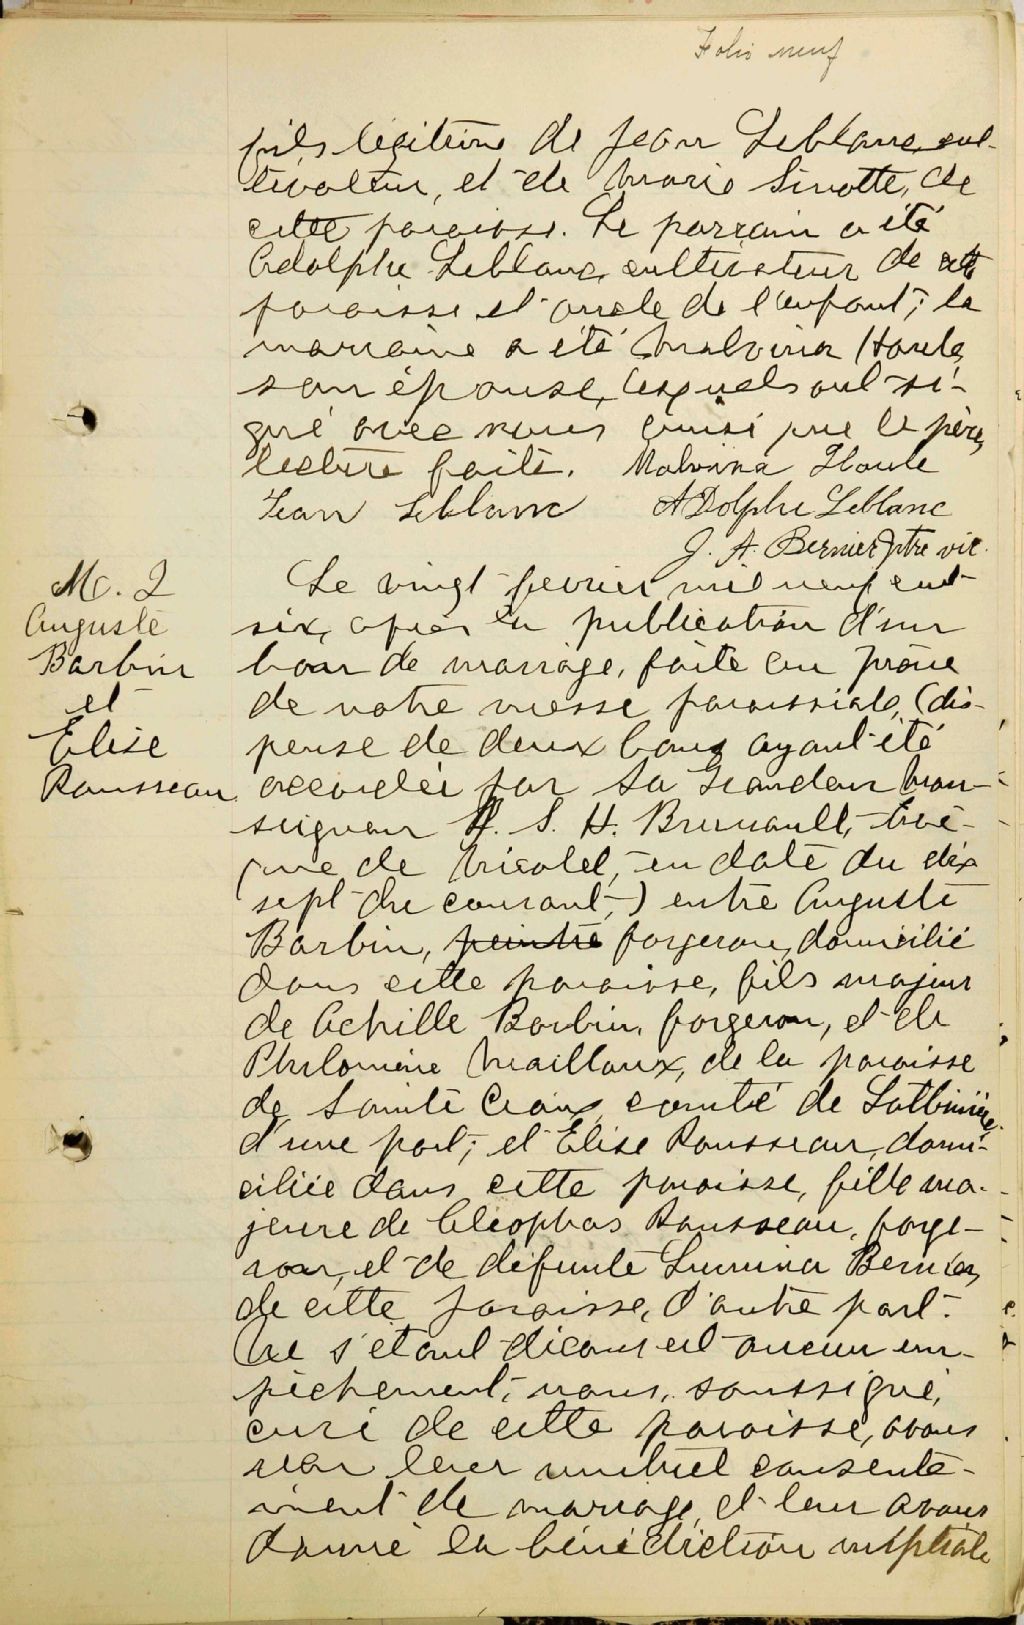 Folio neuf
fils légitime de Jean Leblanc, cul-
tivateur, et de Marie Sinotte, de
cette paroisse. Le parrain a été
Adolphe Leblanc, cultivateur de cette
paroisse et oncle de l'enfant; la
marraine a été Malvina Houle,
son épouse, lesquels ont si-
gné avec nous ainsi que le père,
lecture faite. Malvina Houle
Jean Leblanc Adolphe Leblanc
J. A. Bernier Ptre vic.
M. 2
Auguste
Barbin
et
Elise
Rousseau
Le vingt février mil neuf cent
six, après la publication d'un
ban de mariage, faite au prône
de notre messe paroissiale, (dis-
pense de deux bans ayant été
accordée par Sa Grandeur Mon-
seigneur H. S. H. Brunault, Evê-
que de Nicolet, en date du dix
sept du courant,) entre Auguste
Barbin, peintre forgeron, domicilié
dans cette paroisse, fils majeur
de Achille Barbin, forgeron, et de
Philomène Mailloux, de la paroisse
de Sainte Croix, comté de Lotbinière,
d'une part; et Elise Rousseau, domi-
ciliée dans cette paroisse, fille ma-
jeure de Cléophas Rousseau, forge-
ron, et de défunte Lumina Bernier,
de cette paroisse, d'autre part.
Ne s'étant découvert aucun em-
pêchement, nous, soussigné,
curé de cette paroisse, avons
reçu leur mutuel consente-
ment de mariage, et leur avons
donné la bénédiction nuptiale